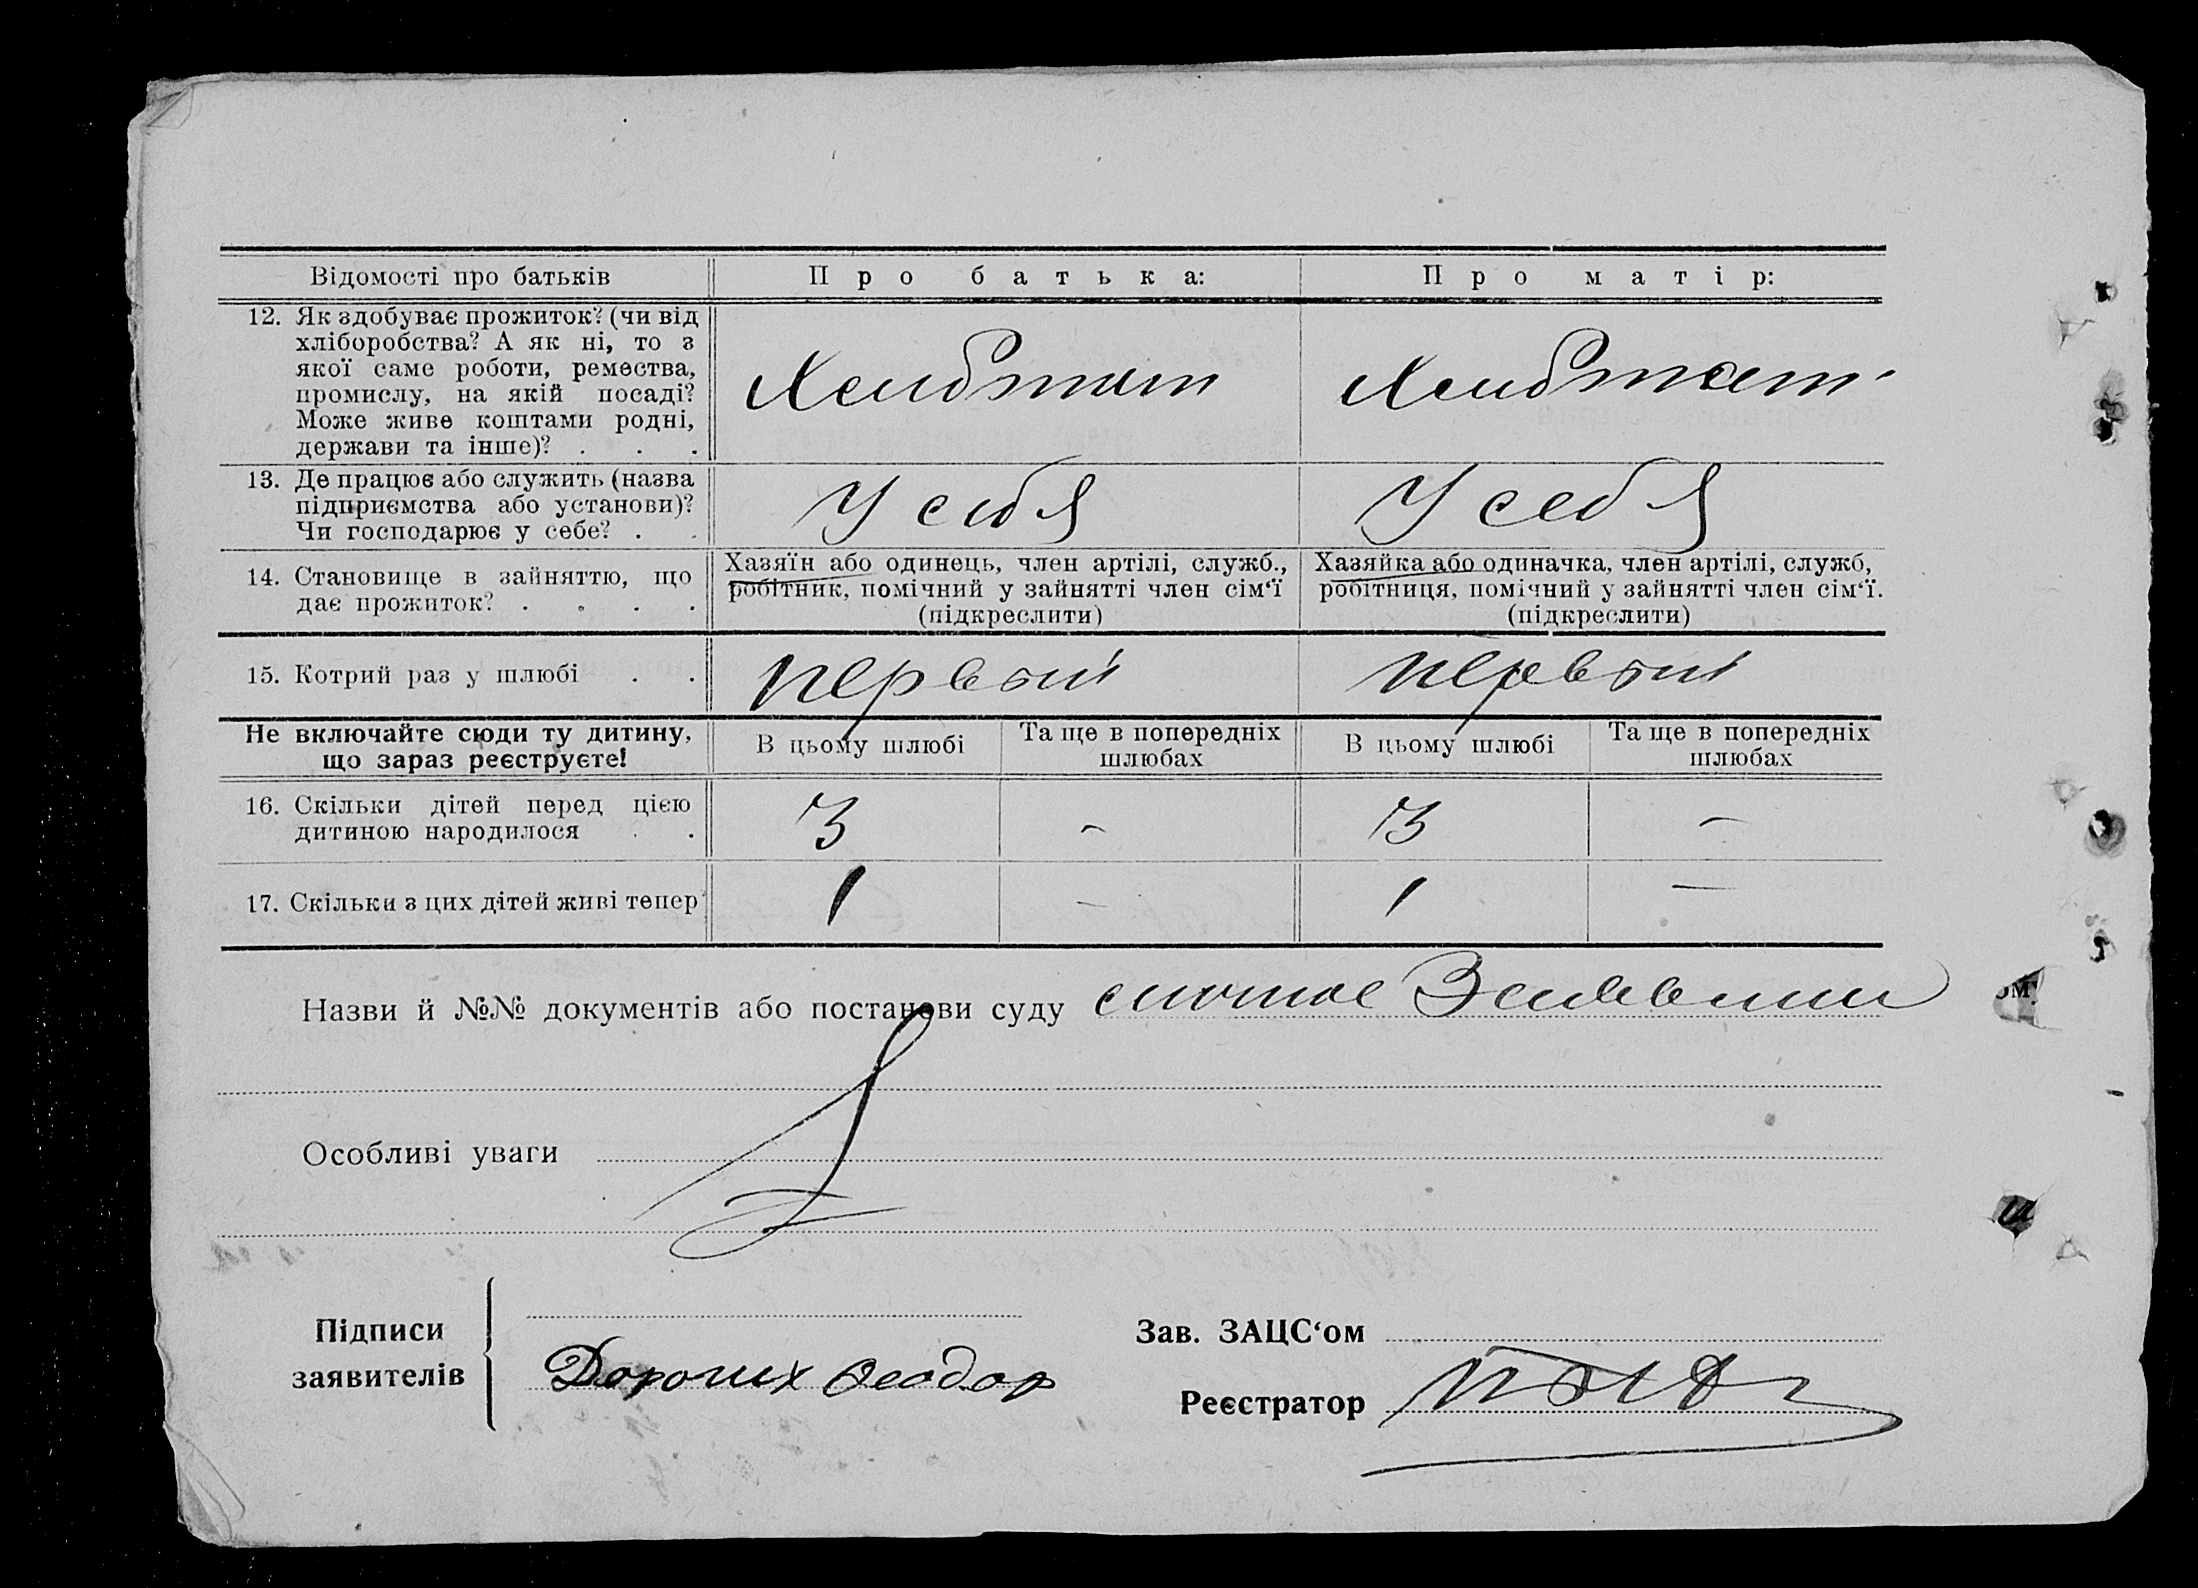 Відомості про батьків
Про батька:
Про матір:
12. Як здобуває прожиток? (чи від
хліборобства? А як ні, то з
якої саме роботи, ремества,
промислу, на якій посаді?
Може живе коштами родні,
держави та інше)? . . .
13. Де працює або служить (назва
підприємства або установи)?
Чи господарює у себе? . .
У себя
У себя
14. Становище в зайняттю, що
дає прожиток? . . . .
Хазяїн або одинець, член артілі, служб.,
робітник, помічний у зайнятті член сім‘ї
(підкреслити)
Хазяйка або одиначка, член артілі, служб,
робітниця, помічний у зайнятті член сім‘ї.
(підкреслити)
15. Котрий раз у шлюбі . .
первый
первый
Не включайте сюди ту дитину,
що зараз реєструєте!
В цьому шлюбі
Та ще в попередніх
шлюбах
В цьому шлюбі
Та ще в попередніх
шлюбах
16. Скільки дітей перед цією
дитиною народилося . .
3 - 3 -
17. Скільки з цих дітей живі тепер
1 - 1 -
Назви й №№ документів або постанови суду
Особливі уваги
Підписи
заявителів
Феодор
Зав. ЗАЦС‘ом
Реєстратор